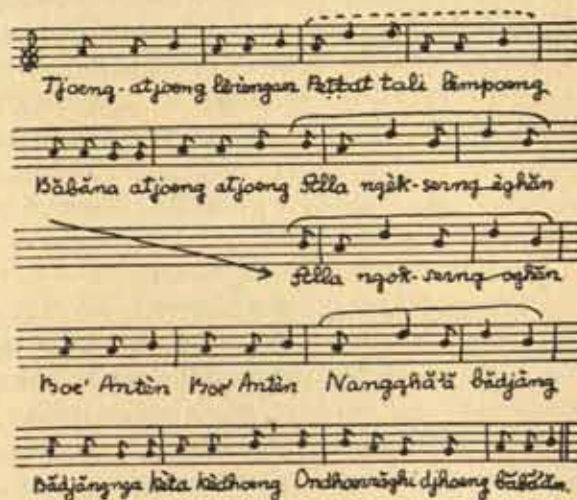 Tjoeng-atjoeng lèrèngan Peṭṭat tali lèmpoeng
Băbăna atjoeng atjoeng Alla ngèk-serng èghăn
Alla ngok-serng oghăn
Boe' Antèn Boe' Antèn Nangghă'ă bădjăng
Bădjăngnga kèta kèdhoeng Ondhoenrăghi djhoeng băbă'ăn.